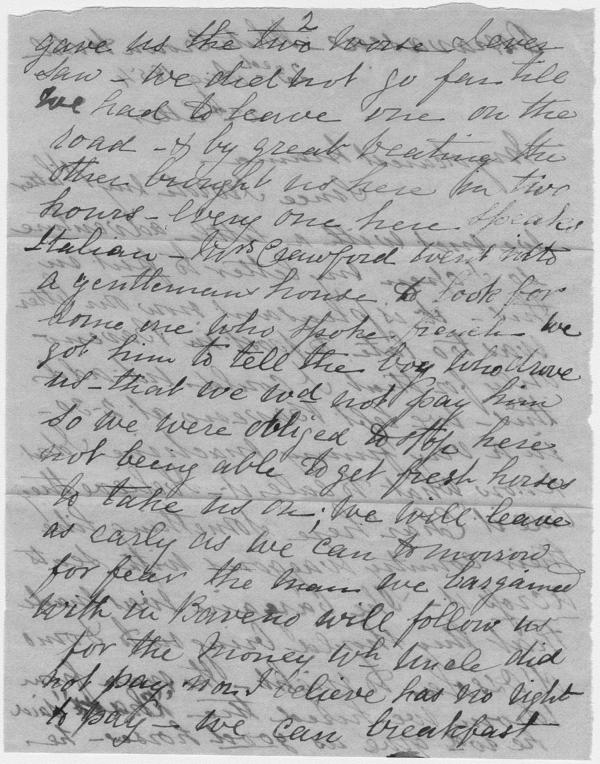 2
gave us the two worse I ever
saw - we did not go far till
we had to leave one on the
road - & by great beating the
other brought us here in two
hours - every one here speaks
Italian - Mrs Crawford went into
a gentlemans house to look for
some one who spoke french we
got him to tell the boy who drove
us - that we wd not pay him
so we were obliged to stop here
not being able to get fresh horses
to take us on; we will leave
as early as we can tomorrow
for fear the man we bargained
with in Baveno will follow us
for the money wh Uncle did
not pay nor I believe has no right
to pay - we can breakfast